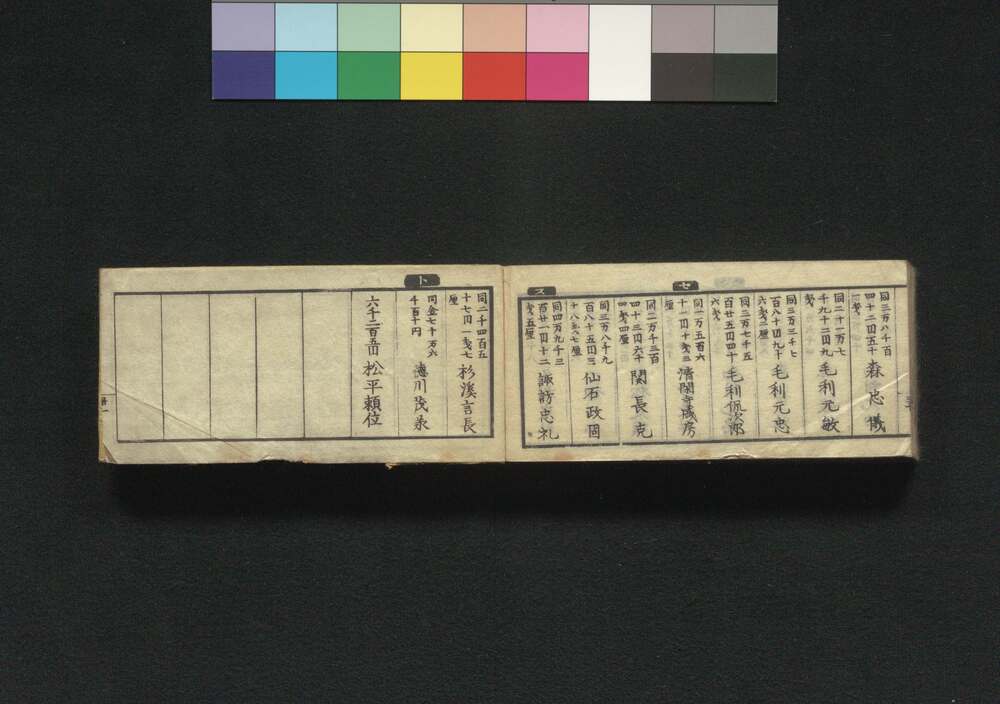 同三万八千百
四十二円五十
森忠儀
同二十一万七
千九十二円九
毛利元敏
同三万三千七
百八十四円十
六戔二厘
毛利元忠
同三万七千五
百廿五円四十
六戔
毛利佩次郎
セ
同一万五百六
十一円十戔三
厘
清閑寺盛房
同二万千三百
四十三円六十
四戔四厘
関長克
同三万八千九
百八十五円三
十八戔七厘
仙石政固
ス
同四万九千三
百廿一円十二
戔五厘
諏訪忠礼
同二千四百五
十七円一戔七
厘
杉溪言長
ト
同金七千万六
千百十円
徳川茂承
六千二百五円
松平頼位